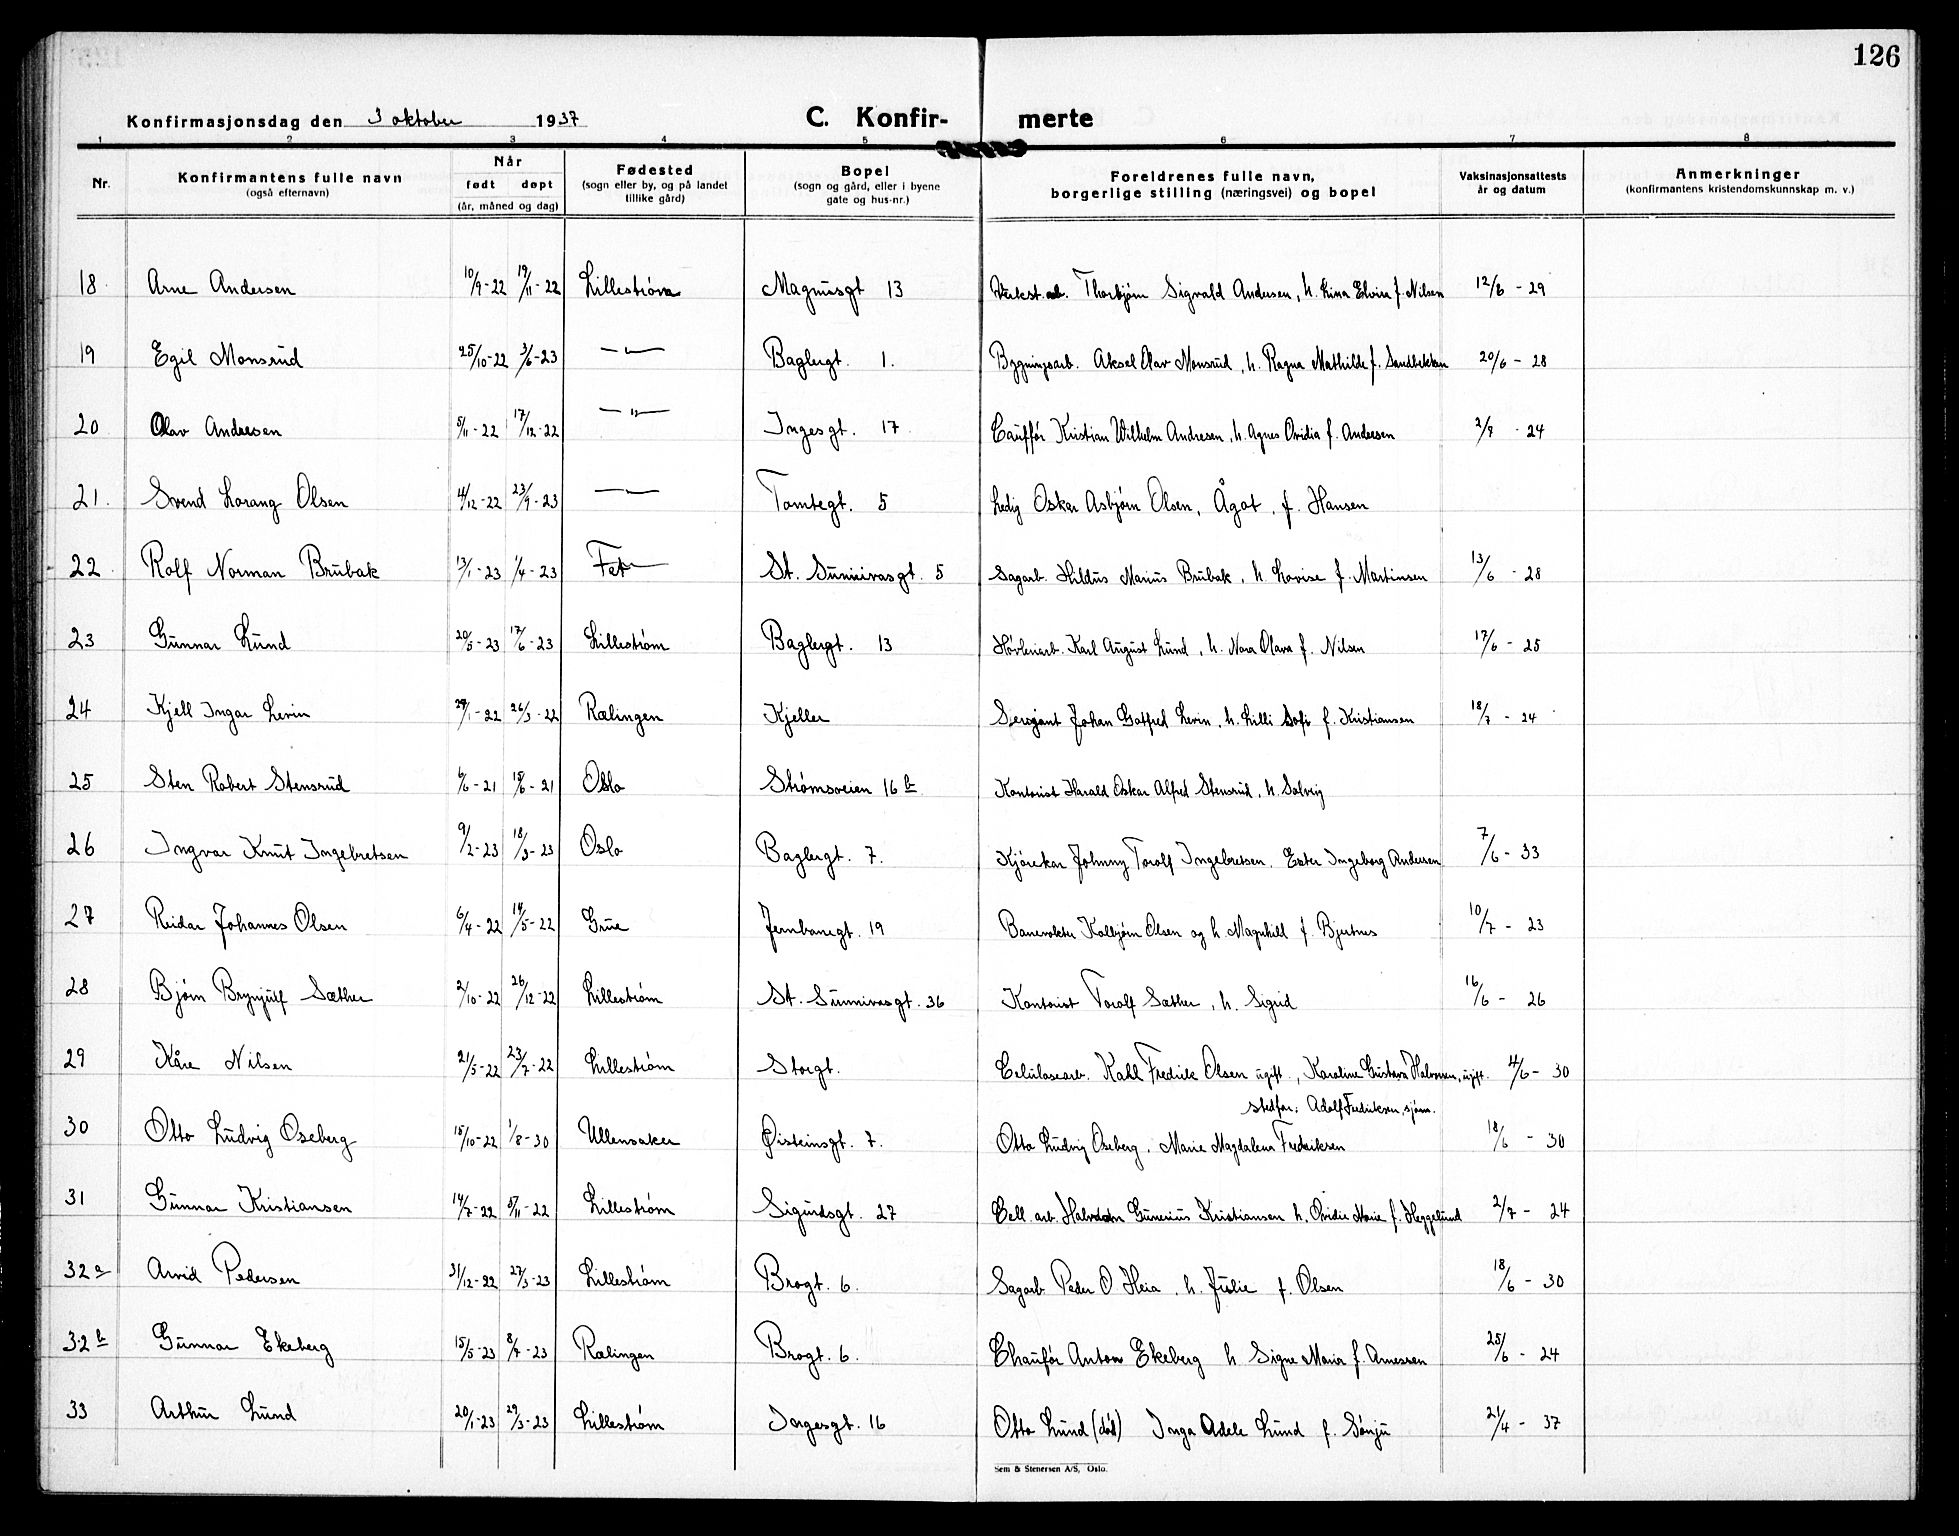 126
Konfirmasjonsdag den 3 oktober 1937 C. Konfir- merte
1 2 3 4 5 6 7 8
Nr. Konfirmantens fulle navn (også efternavn) Når født døpt (år, måned og dag) Fødested (sogn eller by, og på landet tillike gård) Bopel (sogn og gård, eller i byene gate og hus-nr.) Foreldrenes fulle navn, borgerlige stilling (næringsvei) og bopel Vaksinasjonsattests år og datum Anmerkninger (konfirmantens kristendomskunnskap m. v.)
18 Arne Andersen 10/9-22 19/11-22 Lillestrøm Magnusgt 13 Verkst.arb. Thorbjørn Sigvald Andersen, h. Lina Elvira f. Nilsen 12/8 - 29
19 Egil Monsrud 25/10-22 3/6-23 — " — Baglergt. 1. Bygningsarb. Aksel Olav Monsrud, h. Ragna Mathilde f. Sandbekken 20/6 - 28
20 Olav Andresen 5/11-22 17/12-22 — " — Ingesgt. 17 Cauffør Kristian Wilhelm Andresen, h. Agnes Ovidia f. Andersen 2/7 - 24
21. Svend Lorang Olsen 4/12-22 23/9-23 — " — Tomtegt. 5 Ledig Oskar Asbjørn Olsen, Ågot, f. Hansen
22. Rolf Norman Brubak 13/1-23 1/4-23 Fet St. Sunnivasgt. 5 Sagarb. Hildus Marius Brubak, h. Lovise f. Martinsen 13/6 - 28
23 Gunnar Lund 20/5-23 17/6-23 Lillestrøm Baglergt. 13 Høvleriarb. Karl August Lund, h. Nora Olava f. Nilsen 17/6 - 25
24 Kjell Ingar Levin 29/1-22 26/3-22 Rælingen Kjeller Sersjant Johan Gotfred Levin, h. Lilli Sofi f. Kristiansen 18/7 - 24
25 Sten Robert Stensrud 6/6-21 15/6-21 Oslo Strømsveien 16 b Kontorist Harald Oskar Alfred Stensrud, h. Solveig
26 Ingvar Knut Ingebretsen 9/2-23 18/3-23 Oslo Baglergt. 7. Kjørekar Johnny Torolf Ingebretsen. Ester Ingeborg Andersen 7/6 - 33
27 Reidar Johannes Olsen 6/4-22 14/5-22 Grue Jernbanegt. 19 Banevokter Kolbjørn Olsen og h. Magnhill f. Bjertnes 10/7 - 23
28 Bjørn Brynjulf Sæther 2/10-22 26/12-22 Lillestrøm St. Sunnivasgt. 36 Kontorist Torolf Sæther, h. Sigrid 16/6 - 26
29 Kåre Nilsen 21/5-22 23/7-22 Lillestrøm Storgt. Celulosearb. Kahl Fredrik Olsen ugift., Karoline Gustava Halvorsen, ugift. 4/6 - 30
stedfar: Adolf Fredriksen, sjøm.
30 Otto Ludvig Oseberg 15/10-22 1/8-30 Ullensaker Øisteinsgt. 7. Otto Ludvig Oseberg. Marie Magdalena Fredriksen 18/6 - 30
31 Gunnar Kristiansen 14/7-22 5/11-22 Lillestrøm Sigurdsgt. 27 Cell. arb. Halvdan Gunerius Kristiansen h. Ovidie Marie f. Heggelund 2/7 - 24
32 a Arvid Pedersen 31/12-22 27/3-23 Lillestrøm Brogt. 6. Sagarb. Peder O Heia, h. Julie f. Olsen 18/6 - 30
32 b Gunnar Ekeberg 15/5-23 8/7-23 Rælingen Brogt. 6. Chaufør Anton Ekeberg h Signe Maria f. Arnessen 25/6 - 24
33 Arthur Lund 20/1-23 29/3-23 Lillestrøm Ingesgt. 16 Otto Lund (død) Inga Adele Lund f. Sønju 21/4 - 37
Sem & Stenersen A/S, Oslo.